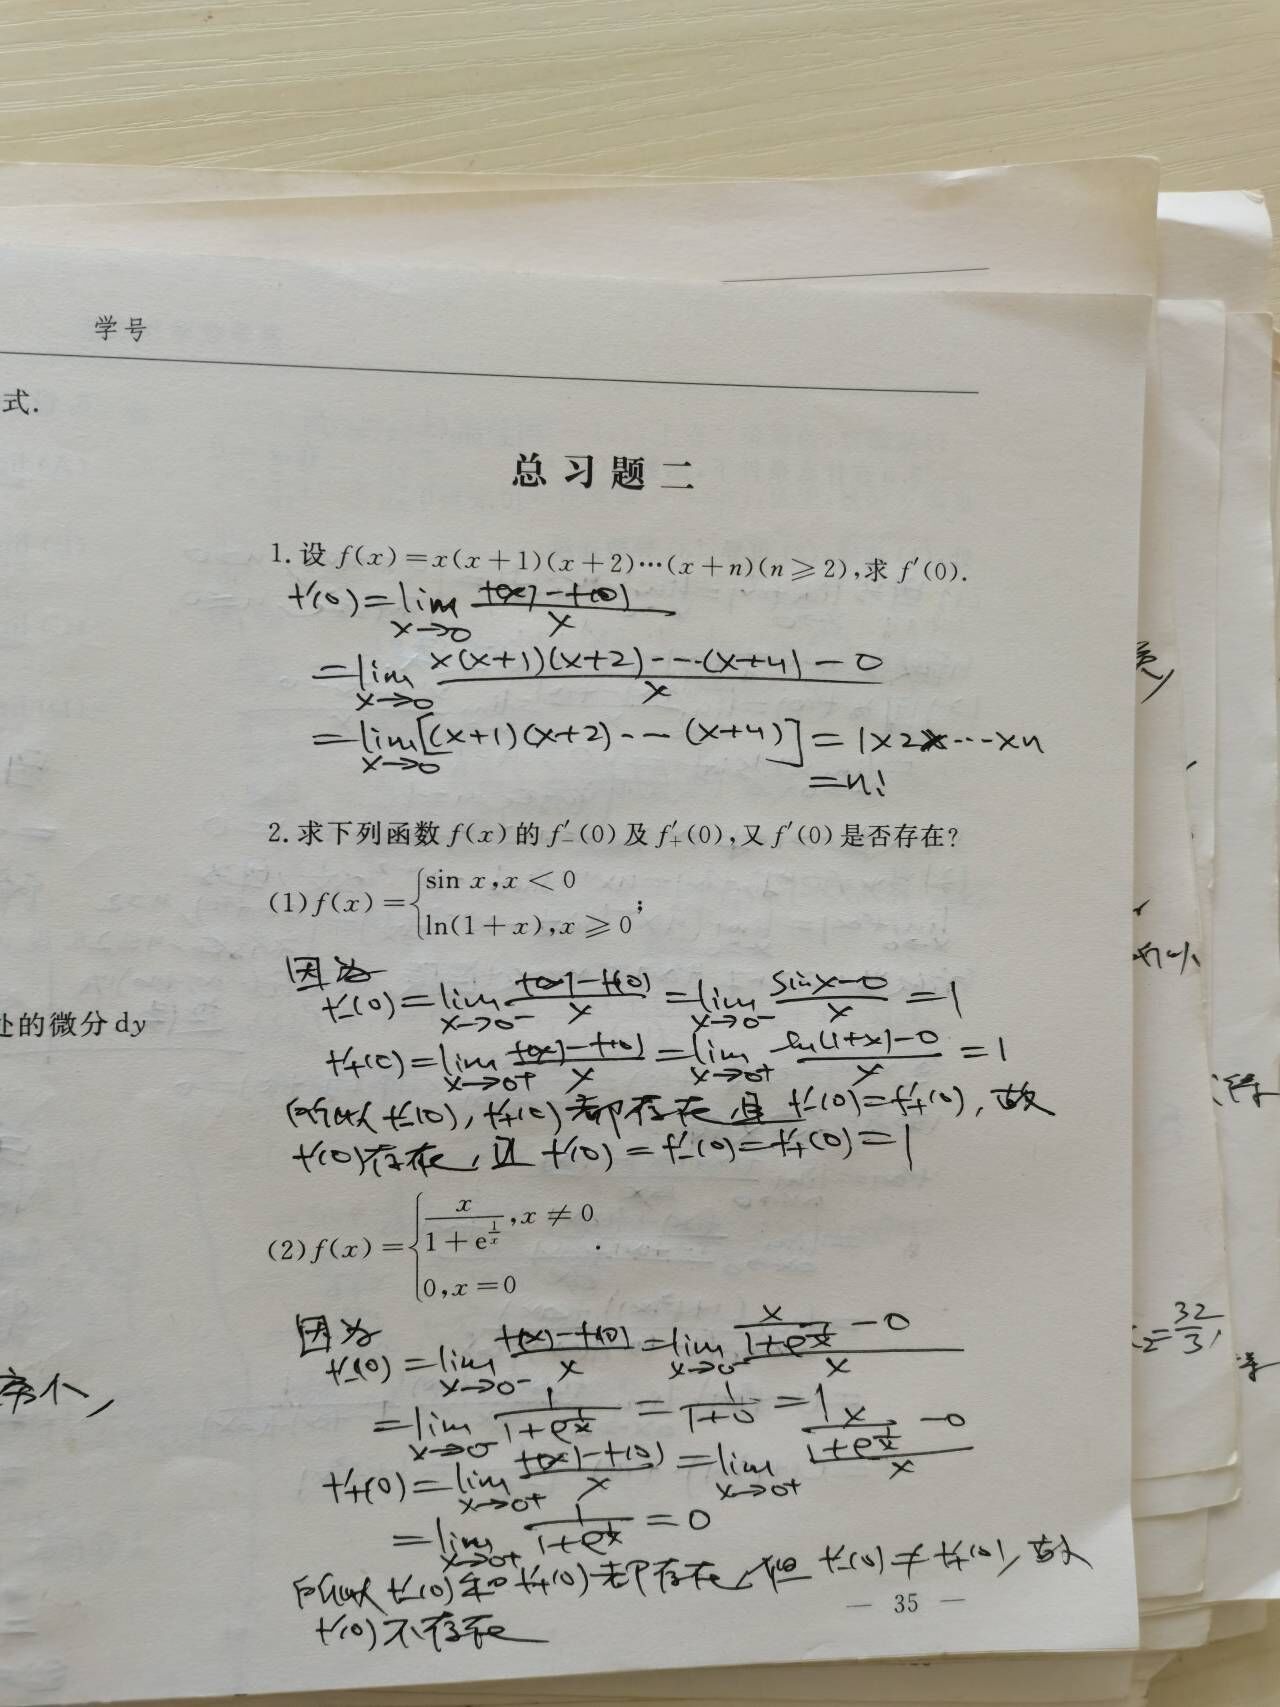 学号
式.
总习题二
1. 设 f(x)=x(x+1)(x+2)⋯(x+n)(n≥2),求 f′(0).
f′(0)=lim_{x→0} (f(x)-f(0))/x
=lim_{x→0} (x(x+1)(x+2)⋯(x+n)-0)/x
=lim_{x→0}[(x+1)(x+2)⋯(x+n)]=1×2×⋯×n
=n!
2. 求下列函数 f(x) 的 f′₋(0) 及 f′₊(0),又 f′(0) 是否存在?
(1) f(x)={sin x, x<0
ln(1+x), x≥0;
因为
f′₋(0)=lim_{x→0⁻} (f(x)-f(0))/x=lim_{x→0⁻} (sinx-0)/x=1
f′₊(0)=lim_{x→0⁺} (f(x)-f(0))/x=lim_{x→0⁺} (ln(1+x)-0)/x=1
所以 f′₋(0), f′₊(0) 都存在,且 f′₋(0)=f′₊(0),故
f′(0)存在,且 f′(0)=f′₋(0)=f′₊(0)=1
(2) f(x)={x/(1+e^{1/x}), x≠0
0, x=0.
因为
f′₋(0)=lim_{x→0⁻} (f(x)-f(0))/x=lim_{x→0⁻} (x/(1+e^{1/x})-0)/x
=lim_{x→0⁻} 1/(1+e^{1/x})=1/(1+0)=1
f′₊(0)=lim_{x→0⁺} (f(x)-f(0))/x=lim_{x→0⁺} (x/(1+e^{1/x})-0)/x
=lim_{x→0⁺} 1/(1+e^{1/x})=0
所以 f′₋(0)和 f′₊(0)都存在,但 f′₋(0)≠f′₊(0),故
f′(0)不存在
— 35 —
处的微分 dy
₂=32/3,